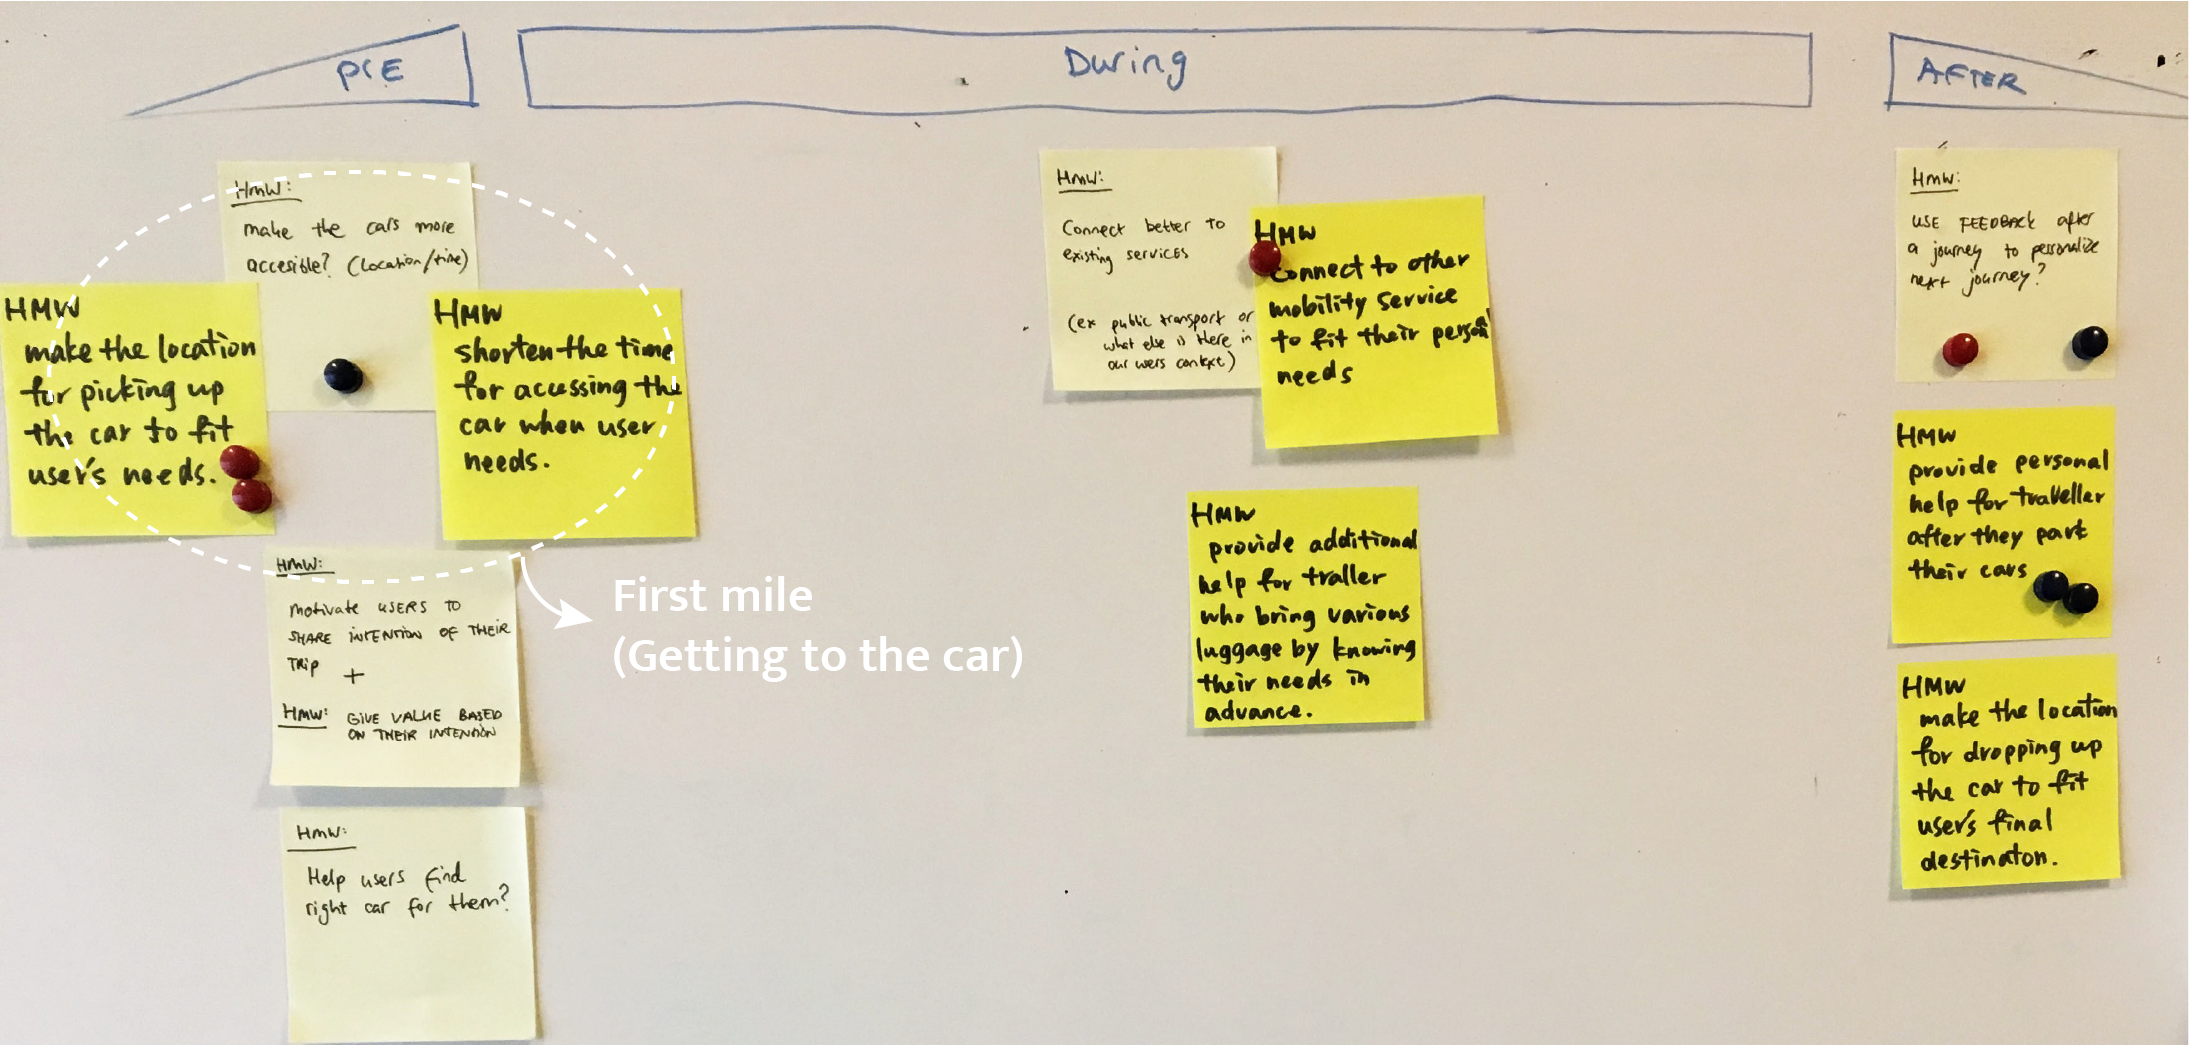 PRE
During
AFTER
HMW:
make the cars more
accesible? (location/time)
HMW
make the location
for picking up
the car to fit
user's needs.
HMW
shorten the time
for accessing the
car when user
needs.
HMW:
motivate USERS TO
SHARE INTENTION OF THEIR
TRIP
+
HMW: GIVE VALUE BASED
ON THEIR INTENTION
HMW:
Help users find
right car for them?
First mile
(Getting to the car)
HMW:
Connect better to
existing services
(ex public transport or
what else is there in
our users context)
HMW
Connect to other
mobility service
to fit their personal
needs
HMW
provide additional
help for traller
who bring various
luggage by knowing
their needs in
advance.
HMW:
USE FEEDBACK after
a journey to personalize
next journey?
HMW
provide personal
help for traveller
after they part
their cars
HMW
make the location
for dropping up
the car to fit
user's final
destinaton.